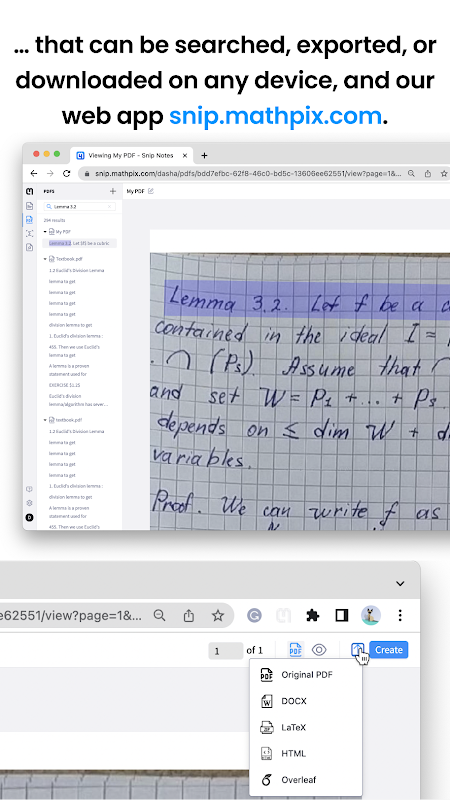 ... that can be searched, exported, or
downloaded on any device, and our
web app snip.mathpix.com.
Viewing My PDF - Snip Notes
snip.mathpix.com/dasha/pdfs/bdd7efbc-62f8-46c0-bd5c-13606ee62551/view?page=1&...
PDFS
My PDF
Lemma 3.2
294 results
My PDF
Lemma 3.2. Let $f$ be a cubic
Textbook.pdf
1.2 Euclid's Division Lemma
lemma to get
lemma to get
lemma to get
lemma to get
division lemma to get
1. Euclid's division lemma :
455. Then we use Euclid's
lemma to get
A lemma is a proven
statement used for
EXERCISE 51.25
Euclid's division
lemma/algorithm has sever...
textbook.pdf
1.2 Euclid's Division Lemma
lemma to get
lemma to get
lemma to get
lemma to get
1. Euclid's division lemma :
division lemma to get
A lemma is a proven
statement used for
455. Then we use Euclid's
Lemma 3.2. Let f be a c
contained in the ideal I =
. ∩ (Ps). Assume that
and set W = P1 + ... + Ps
depends on ≤ dim W + d
variables.
Proof. We can write f as
e62551/view?page=1&...
1 of 1
PDF
Create
Original PDF
DOCX
LaTeX
HTML
Overleaf